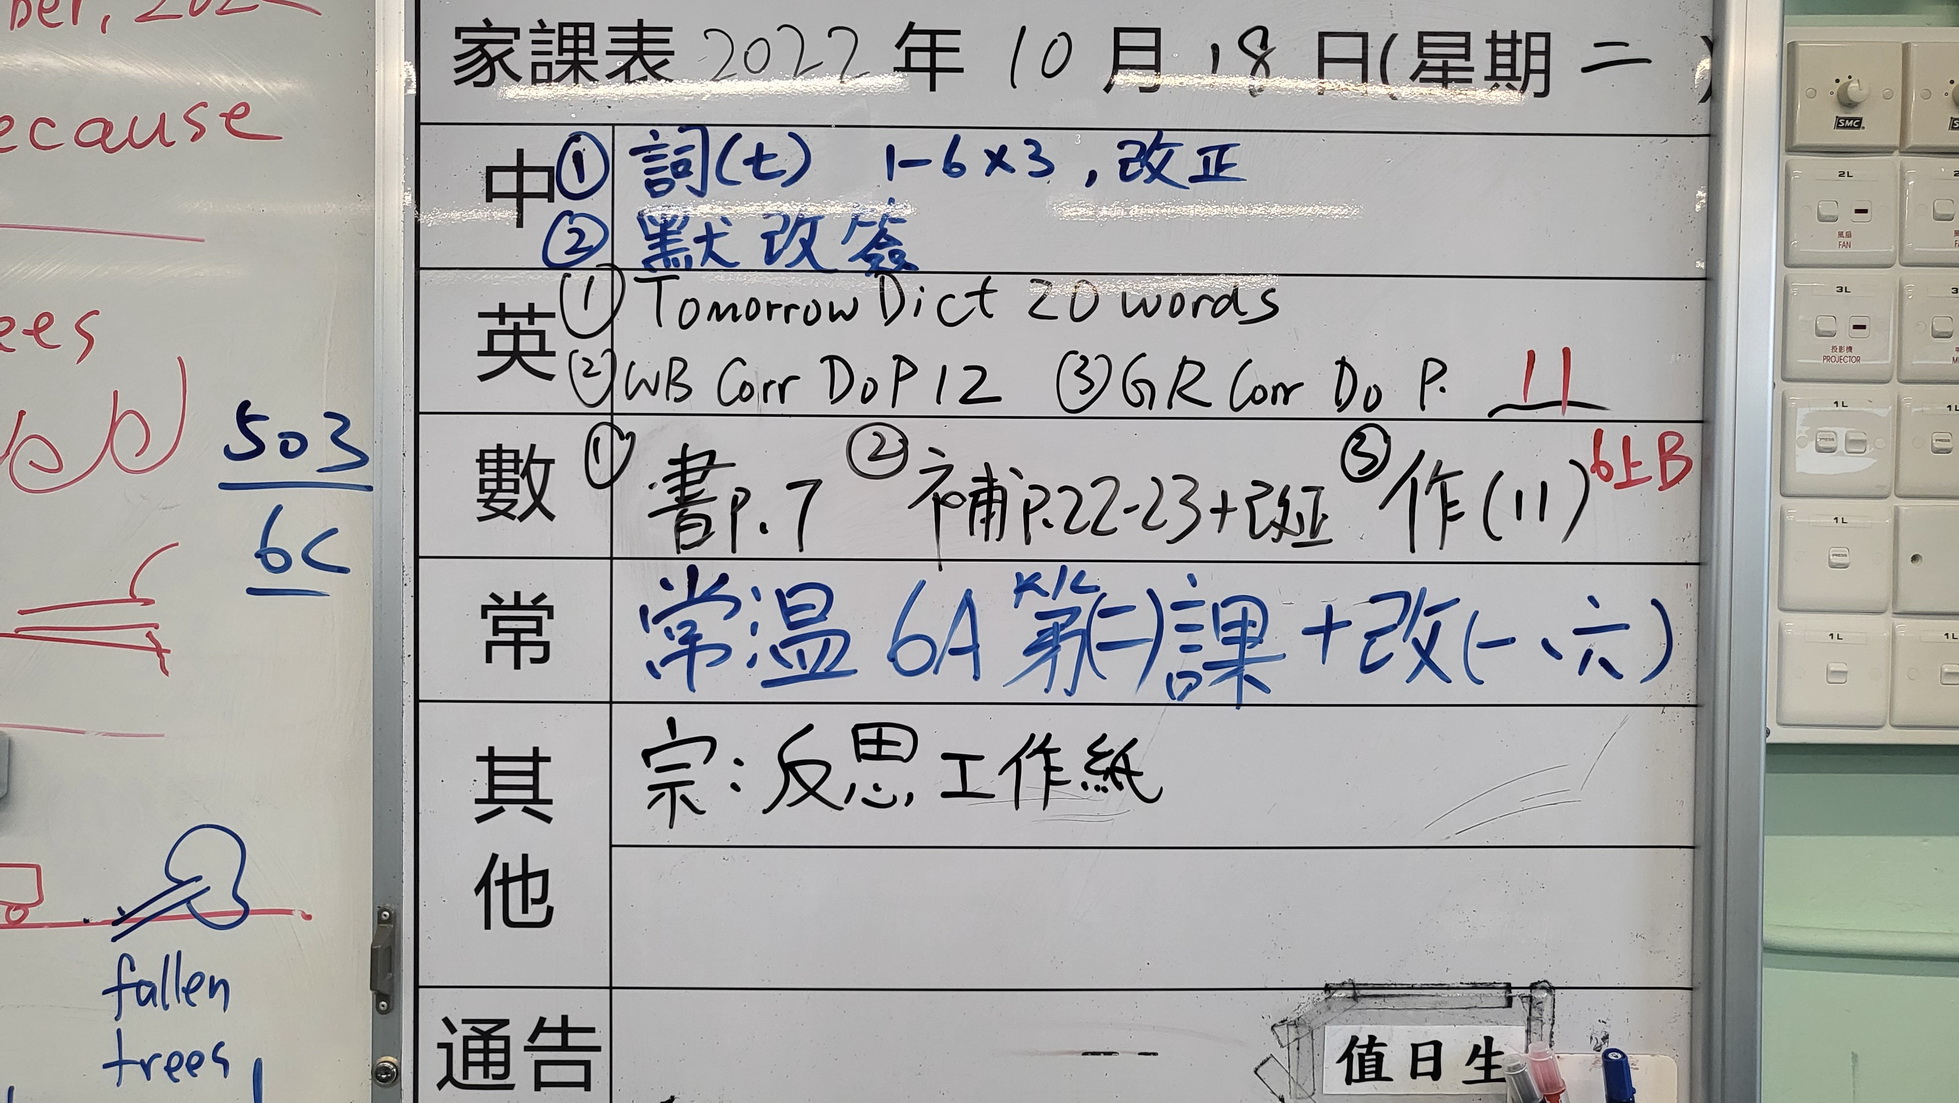 ecause
ees
503
6C
fallen
trees
家課表 2022年 10月 18日(星期二)
中
① 詞(七) 1-6×3,改正
② 默改簽
英
① Tomorrow Dict 20 words
② WB Corr Do P12 ③ GR Corr Do P. 11
數
① 書P.7 ② 補P.22-23+改正 ③ 作(11) 6上B
常
常溫 6A 第(二)課+改(一、六)
其他
宗:反思工作紙
通告
值日生
SMC
2L
風扇
FAN
3L
投影機
PROJECTOR
1L
PRESS
1L
PRESS
1L